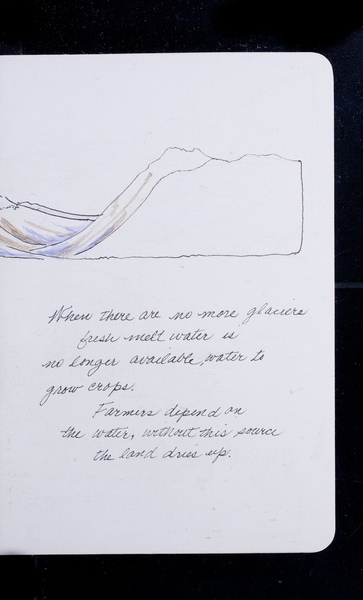 When there are no more glaciers
fresh melt water is
no longer available, water to
grow crops.
Farmers depend on
the water, without this source
the land dries up.